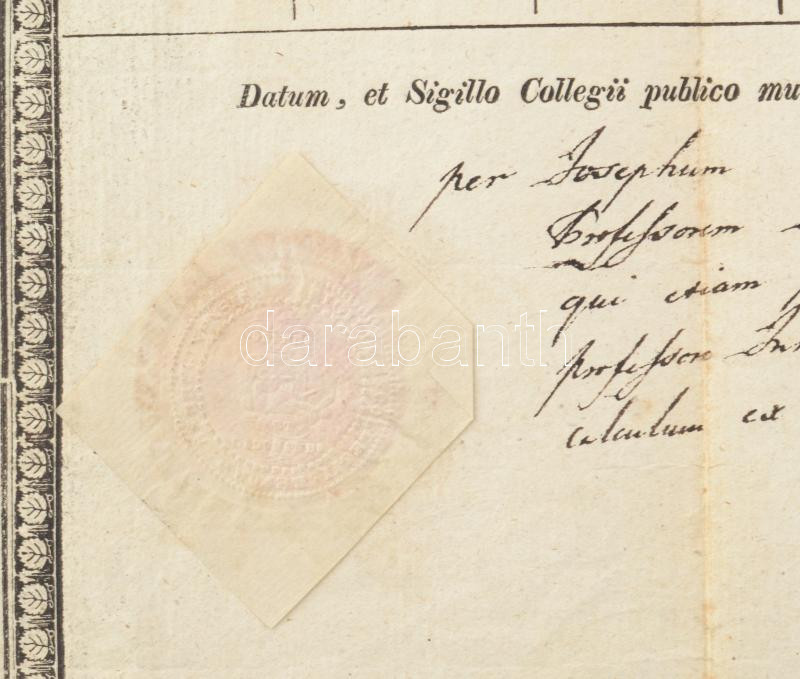 Datum, et Sigillo Collegii publico mu
per Josephum
Professorem
qui etiam
professore
calculum ex
darabanth